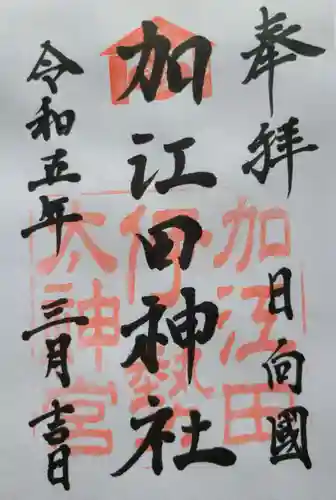 奉拝
日向國
加江田神社
令和五年
三月吉日
加江田
伊勢
大神宮